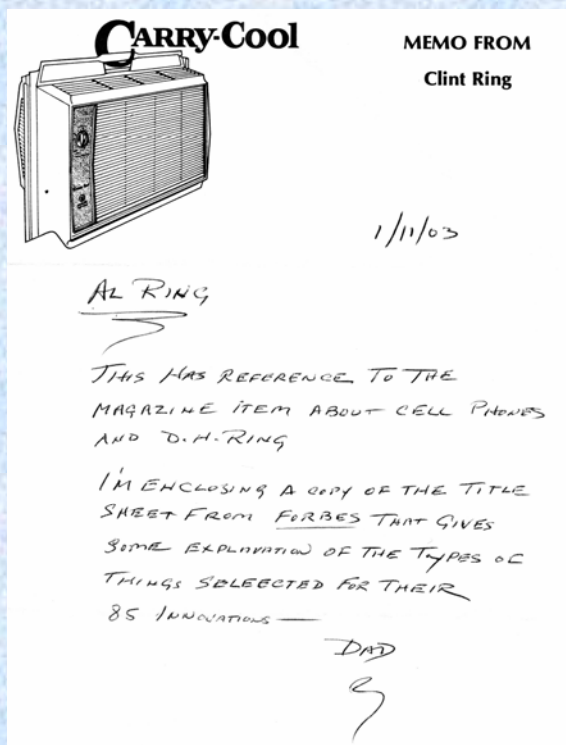 CARRY-COOL
MEMO FROM
Clint Ring
1/11/03
AL RING
THIS HAS REFERENCE TO THE
MAGAZINE ITEM ABOUT CELL PHONES
AND D.H. RING
I'M ENCLOSING A COPY OF THE TITLE
SHEET FROM FORBES THAT GIVES
SOME EXPLANATION OF THE TYPES OF
THINGS SELEECTED FOR THEIR
85 INNOVATIONS —
DAD